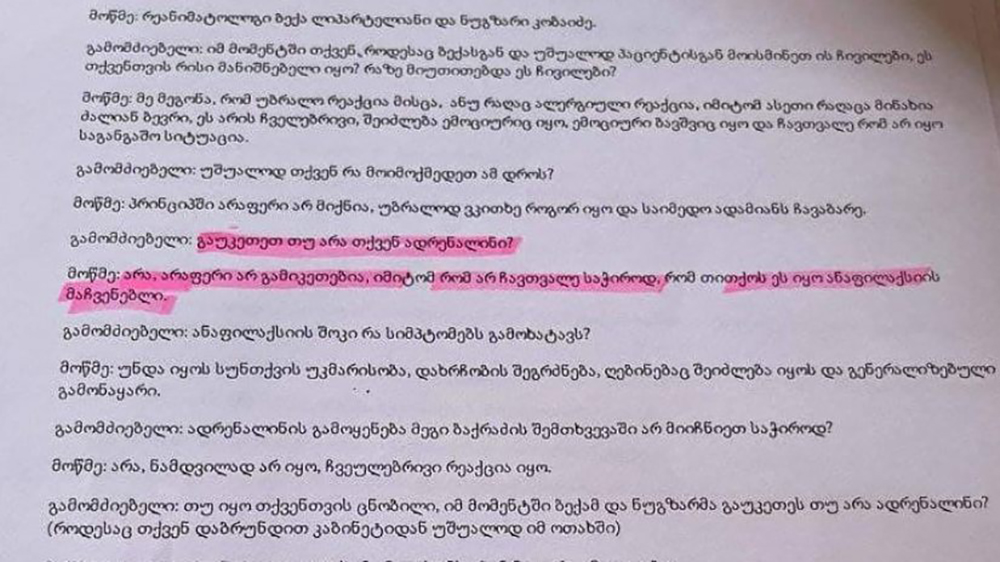 მოწმე: რეანიმატოლოგი ბექა ლიპარტელიანი და ნუგზარი კობაიძე.
გამომძიებელი: იმ მომენტში თქვენ, როდესაც ბექასგან და უშუალოდ პაციენტისგან მოისმინეთ ის ჩივილები, ეს
თქვენთვის რისი მანიშნებელი იყო? რაზე მიუთითებდა ეს ჩივილები?
მოწმე: მე მეგონა, რომ უბრალო რეაქცია მისცა, ანუ რაღაც ალერგიული რეაქცია, იმიტომ ასეთი რაღაცა მინახია
ძალიან ბევრი, ეს არის ჩველებრივი, შეიძლება ემოციურიც იყო, ემოციური ბავშვიც იყო და ჩავთვალე რომ არ იყო
საგანგაშო სიტუაცია.
გამომძიებელი: უშუალოდ თქვენ რა მოიმოქმედეთ ამ დროს?
მოწმე: პრინციპში არაფერი არ მიქნია, უბრალოდ ვკითხე როგორ იყო და საიმედო ადამიანს ჩავაბარე.
გამომძიებელი: გაუკეთეთ თუ არა თქვენ ადრენალინი?
მოწმე: არა, არაფერი არ გამიკეთებია, იმიტომ რომ არ ჩავთვალე საჭიროდ, რომ თითქოს ეს იყო ანაფილაქსიის
მაჩვენებლი.
გამომძიებელი: ანაფილაქსიის შოკი რა სიმპტომებს გამოხატავს?
მოწმე: უნდა იყოს სუნთქვის უკმარისობა, დახრჩობის შეგრძნება, ღებინებაც შეიძლება იყოს და გენერალიზებული
გამონაყარი.
გამომძიებელი: ადრენალინის გამოყენება მეგი ბაქრაძის შემთხვევაში არ მიიჩნიეთ საჭიროდ?
მოწმე: არა, ნამდვილად არ იყო, ჩვეულებრივი რეაქცია იყო.
გამომძიებელი: თუ იყო თქვენთვის ცნობილი, იმ მომენტში ბექამ და ნუგზარმა გაუკეთეს თუ არა ადრენალინი?
(როდესაც თქვენ დაბრუნდით კაბინეტიდან უშუალოდ იმ ოთახში)